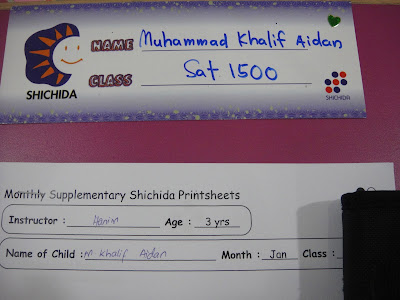 NAME Muhammad Khalif Aidan
CLASS Sat 1500
SHICHIDA
SHICHIDA
Monthly Supplementary Shichida Printsheets
Instructor : Hanim Age : 3 yrs
Name of Child : M Khalif Aidan Month : Jan Class :